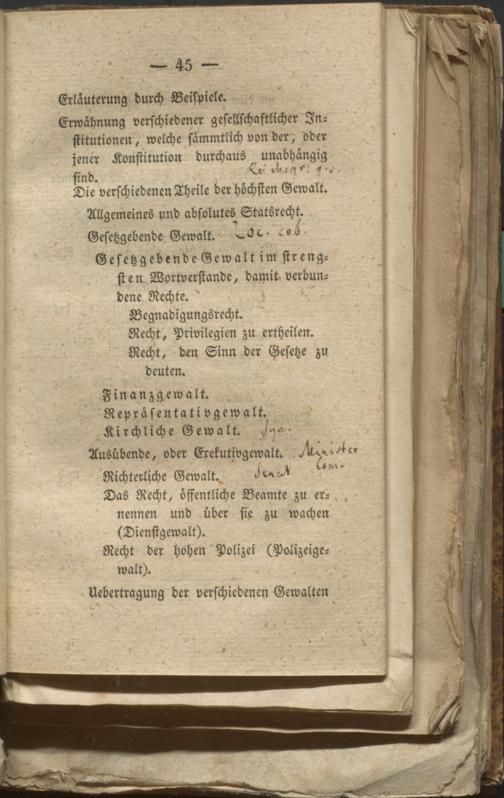 — 45 —
Erläuterung durch Beispiele.
Erwähnung verschiedener gesellschaftlicher In-
stitutionen, welche sämmtlich von der, oder
jener Konstitution durchaus unabhängig
sind.
Die verschiedenen Theile der höchsten Gewalt.
Allgemeines und absolutes Statsrecht.
Gesetzgebende Gewalt.
Gesetzgebende Gewalt im streng-
sten Wortverstande, damit verbun-
dene Rechte.
Begnadigungsrecht.
Recht, Privilegien zu ertheilen.
Recht, den Sinn der Gesetze zu
deuten.
Finanzgewalt.
Repräsentativgewalt.
Kirchliche Gewalt. Syn.
Ausübende, oder Exekutivgewalt. Minister
Com.
Richterliche Gewalt. Senat
Das Recht, öffentliche Beamte zu er-
nennen und über sie zu wachen
(Dienstgewalt).
Recht der hohen Polizei (Polizeige-
walt).
Uebertragung der verschiedenen Gewalten